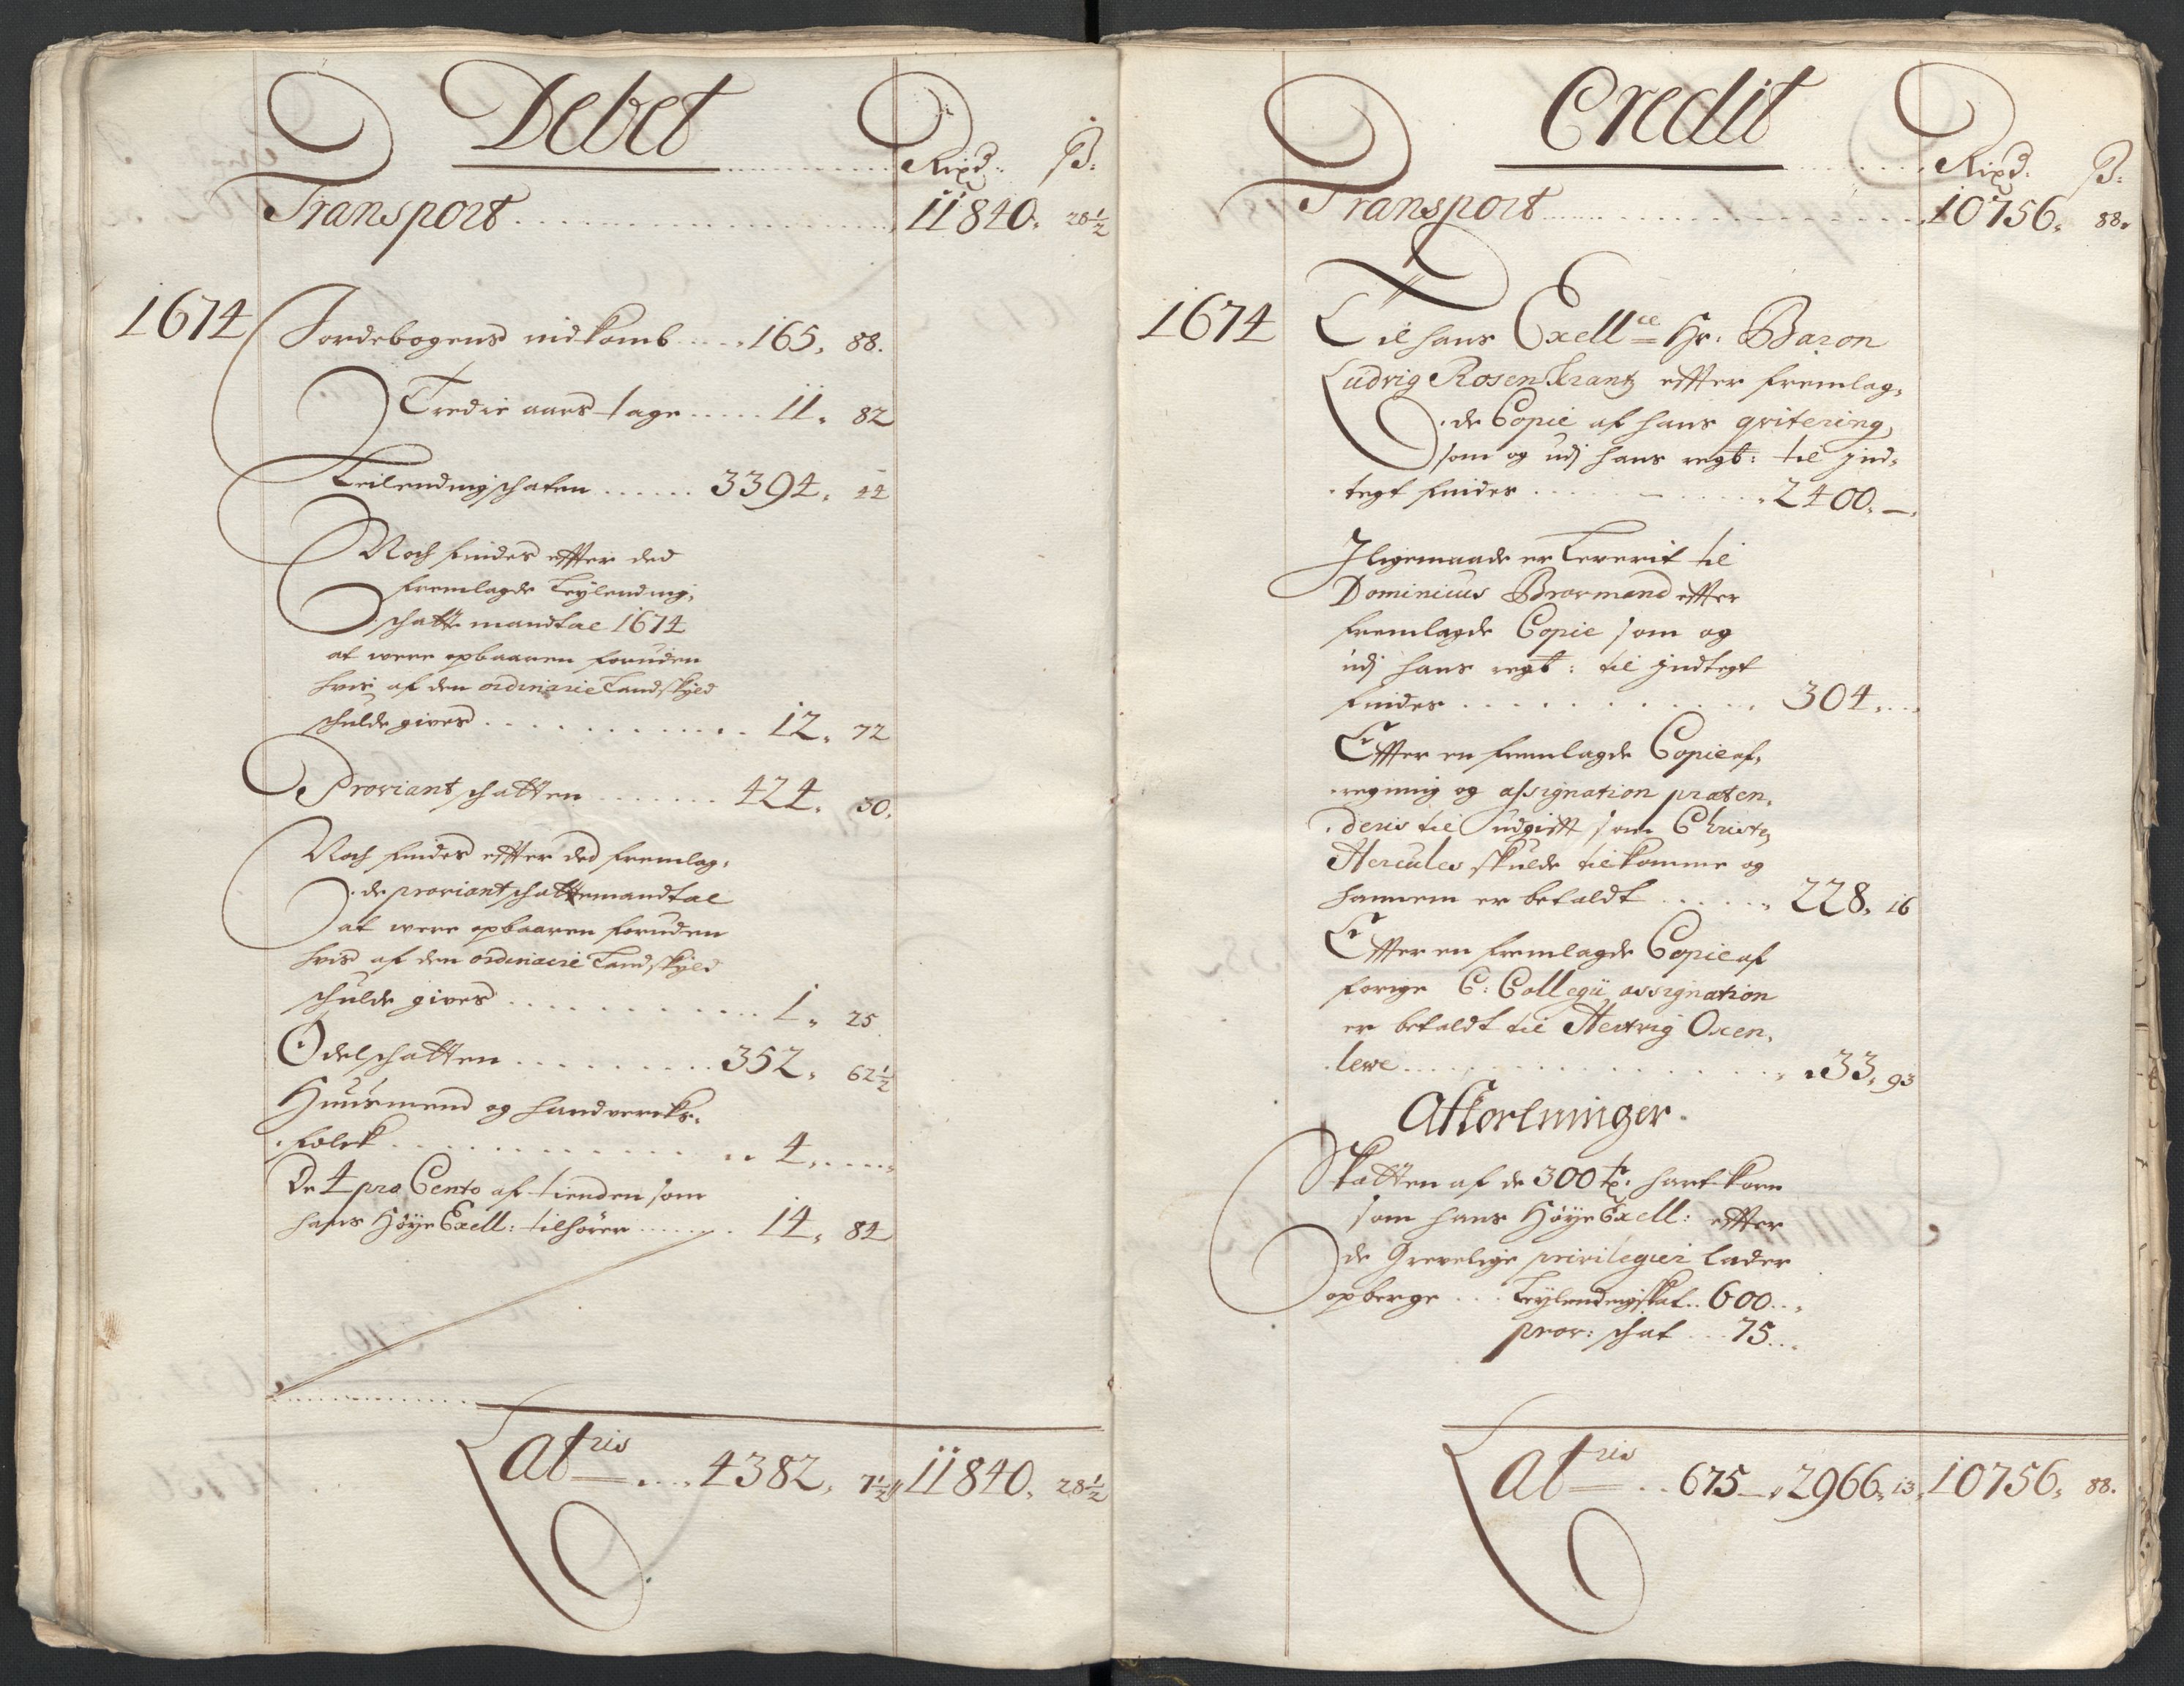 Debet
Rixd. ß:
Transport 11840. 28½
1674 Jordebogens indkomb 165. 88.
Tredie aars tage 11. 82
Leilendingschaten 3394. 44
Noch findes effter ded
fremlagde Leylending,
schatte mandtal 1674
at were opbaaren foruden
hvis af den ordinarie Landskyld
schulde gives 12. 72
Proviant schatten 424. 30.
Noch findes effter ded fremlag,
de proviantschattemandtal
at were opbaaren foruden
hvis af den ordinarie Landskyld
schulde gives 1. 25
Odelschatten 352. 62½
Huusmend og handverks,
folck 4.
De 4 pro Cento af tienden som
hans Höye Exell: tilhörer 14. 84
Lat ris 4382. 7½ 11840. 28½
Credit
Rixd. ß:
Transport 10756. 88.
1674 Til hans Exell ce Hr: Baron
Ludvig Rosenkrantz effter fremlag,
de Copie af hans qvitering,
som og udj hans regb: til Ind,
tegt findes 2400. —
Jligemaade er Leverit til
Dominicus Brormand effter
fremlagde Copie som og
udj hans regb: til Indtegt
findes 304.
Effter en fremlagde Copie af,
regning og assignation præten,
deris til udgifft som Christen
Hercules skulde tilkomme og
hannem er betaldt 228. 16
Effter en fremlagde Copie af
forige C: Collegii assignation
er betaldt til Hertvig Oxen,
lewe 33. 93
Afkortninger.
Skatten af de 300 tr. hartkorn
som hans Höye Exell: effter
de Grevelige privilegier lader
opberge Leylendingskat 600.
prov: schat 75.
Lat ris 675 — 2966. 13. 10756. 88.